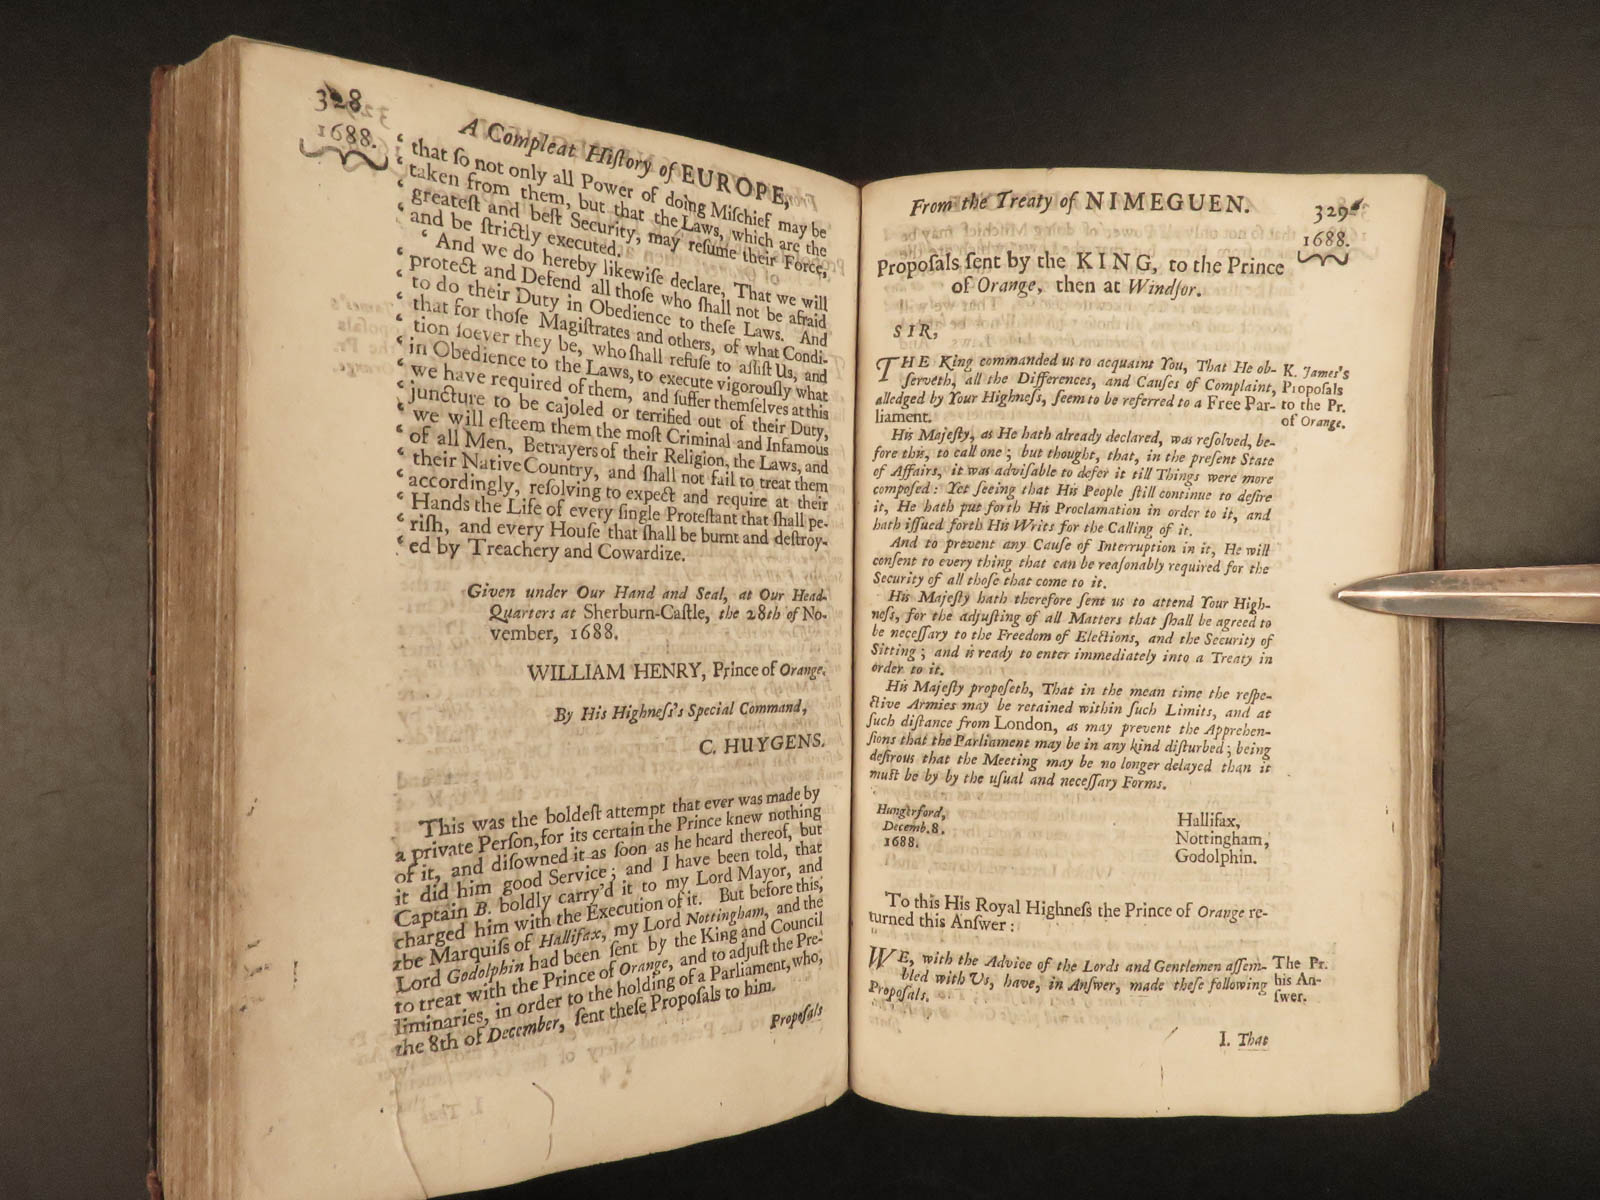 328
1688.
A Compleat Hiſtory of EUROPE,
‘ that ſo not only all Power of doing Miſchief may be
‘ taken from them, but that the Laws, which are the
‘ greateſt and beſt Security, may reſume their Force,
‘ and be ſtrictly executed.
‘ And we do hereby likewiſe declare, That we will
‘ protect and Defend all thoſe who ſhall not be afraid
‘ to do their Duty in Obedience to theſe Laws. And
‘ that for thoſe Magiſtrates and others, of what Condi-
‘ tion ſoever they be, who ſhall refuſe to aſſiſt Us, and
‘ in Obedience to the Laws, to execute vigorouſly what
‘ we have required of them, and ſuffer themſelves at this
‘ juncture to be cajoled or terrified out of their Duty,
‘ we will eſteem them the moſt Criminal and Infamous
‘ of all Men, Betrayers of their Religion, the Laws, and
‘ their Native Country, and ſhall not fail to treat them
‘ accordingly, reſolving to expect and require at their
‘ Hands the Life of every ſingle Proteſtant that ſhall pe-
‘ riſh, and every Houſe that ſhall be burnt and deſtroy-
‘ ed by Treachery and Cowardize.
Given under Our Hand and Seal, at Our Head-
Quarters at Sherburn-Caſtle, the 28th of No-
vember, 1688.
WILLIAM HENRY, Prince of Orange.
By His Highneſs's Special Command,
C. HUYGENS.
This was the boldeſt attempt that ever was made by
a private Perſon, for its certain the Prince knew nothing
of it, and diſowned it as ſoon as he heard thereof, but
it did him good Service; and I have been told, that
Captain B. boldly carry'd it to my Lord Mayor, and
charged him with the Execution of it. But before this,
the Marquiſs of Hallifax, my Lord Nottingham, and the
Lord Godolphin had been ſent by the King and Council
to treat with the Prince of Orange, and to adjuſt the Pre-
liminaries, in order to the holding of a Parliament, who,
the 8th of December, ſent theſe Propoſals to him.
Propoſals
From the Treaty of NIMEGUEN.
329
1688.
Propoſals ſent by the KING, to the Prince
of Orange, then at Windſor.
SIR,
THE King commanded us to acquaint You, That He ob-
ſerveth, all the Differences, and Cauſes of Complaint,
alledged by Your Highneſs, ſeem to be referred to a Free Par-
liament.
K. James's
Propoſals
to the Pr.
of Orange.
His Majeſty, as He hath already declared, was reſolved, be-
fore this, to call one; but thought, that, in the preſent State
of Affairs, it was adviſable to defer it till Things were more
compoſed: Yet ſeeing that His People ſtill continue to deſire
it, He hath put forth His Proclamation in order to it, and
hath iſſued forth His Writs for the Calling of it.
And to prevent any Cauſe of Interruption in it, He will
conſent to every thing that can be reaſonably required for the
Security of all thoſe that come to it.
His Majeſty hath therefore ſent us to attend Your High-
neſs, for the adjuſting of all Matters that ſhall be agreed to
be neceſſary to the Freedom of Elections, and the Security of
Sitting; and is ready to enter immediately into a Treaty in
order to it.
His Majeſty propoſeth, That in the mean time the reſpe-
ctive Armies may be retained within ſuch Limits, and at
ſuch diſtance from London, as may prevent the Apprehen-
ſions that the Parliament may be in any kind diſturbed; being
deſirous that the Meeting may be no longer delayed than it
muſt be by by the uſual and neceſſary Forms.
Hungerford,
Decemb. 8.
1688.
Hallifax,
Nottingham,
Godolphin.
To this His Royal Highneſs the Prince of Orange re-
turned this Anſwer:
WE, with the Advice of the Lords and Gentlemen aſſem-
bled with Us, have, in Anſwer, made theſe following
Propoſals.
The Pr.
his An-
ſwer.
I. That